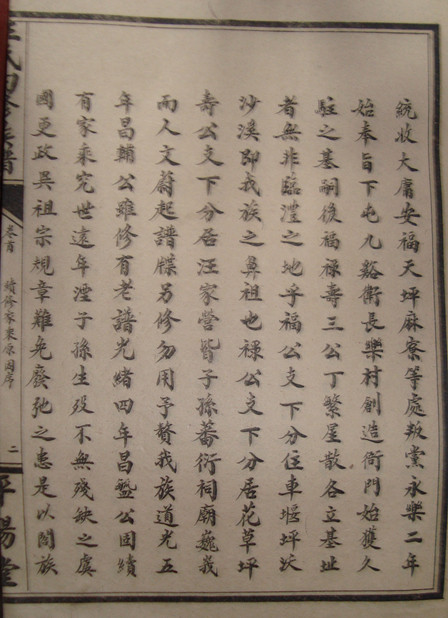 統收大庸安福天坪麻寮等處叛黨永樂二年
始奉旨下屯九谿衛長樂村創造衙門始獲久
駐之基嗣後福祿壽三公丁繁星散各立基址
者無非臨澧之地乎福公支下分住車堰坪沃
沙溪卽我族之鼻祖也祿公支下分居花草坪
壽公支下分居汪家營皆子孫蕃衍祠廟巍我
而人文蔚起譜牒另修勿用予贅我族道光五
年昌輔公雖修有老譜光緒四年昌盤公固續
有家乘究世遠年湮子孫生歿不無殘缺之虞
國更政異祖宗規章難免廢弛之患是以闔族
氏四修族譜
卷首 續修家乘原因序 二
平陽堂